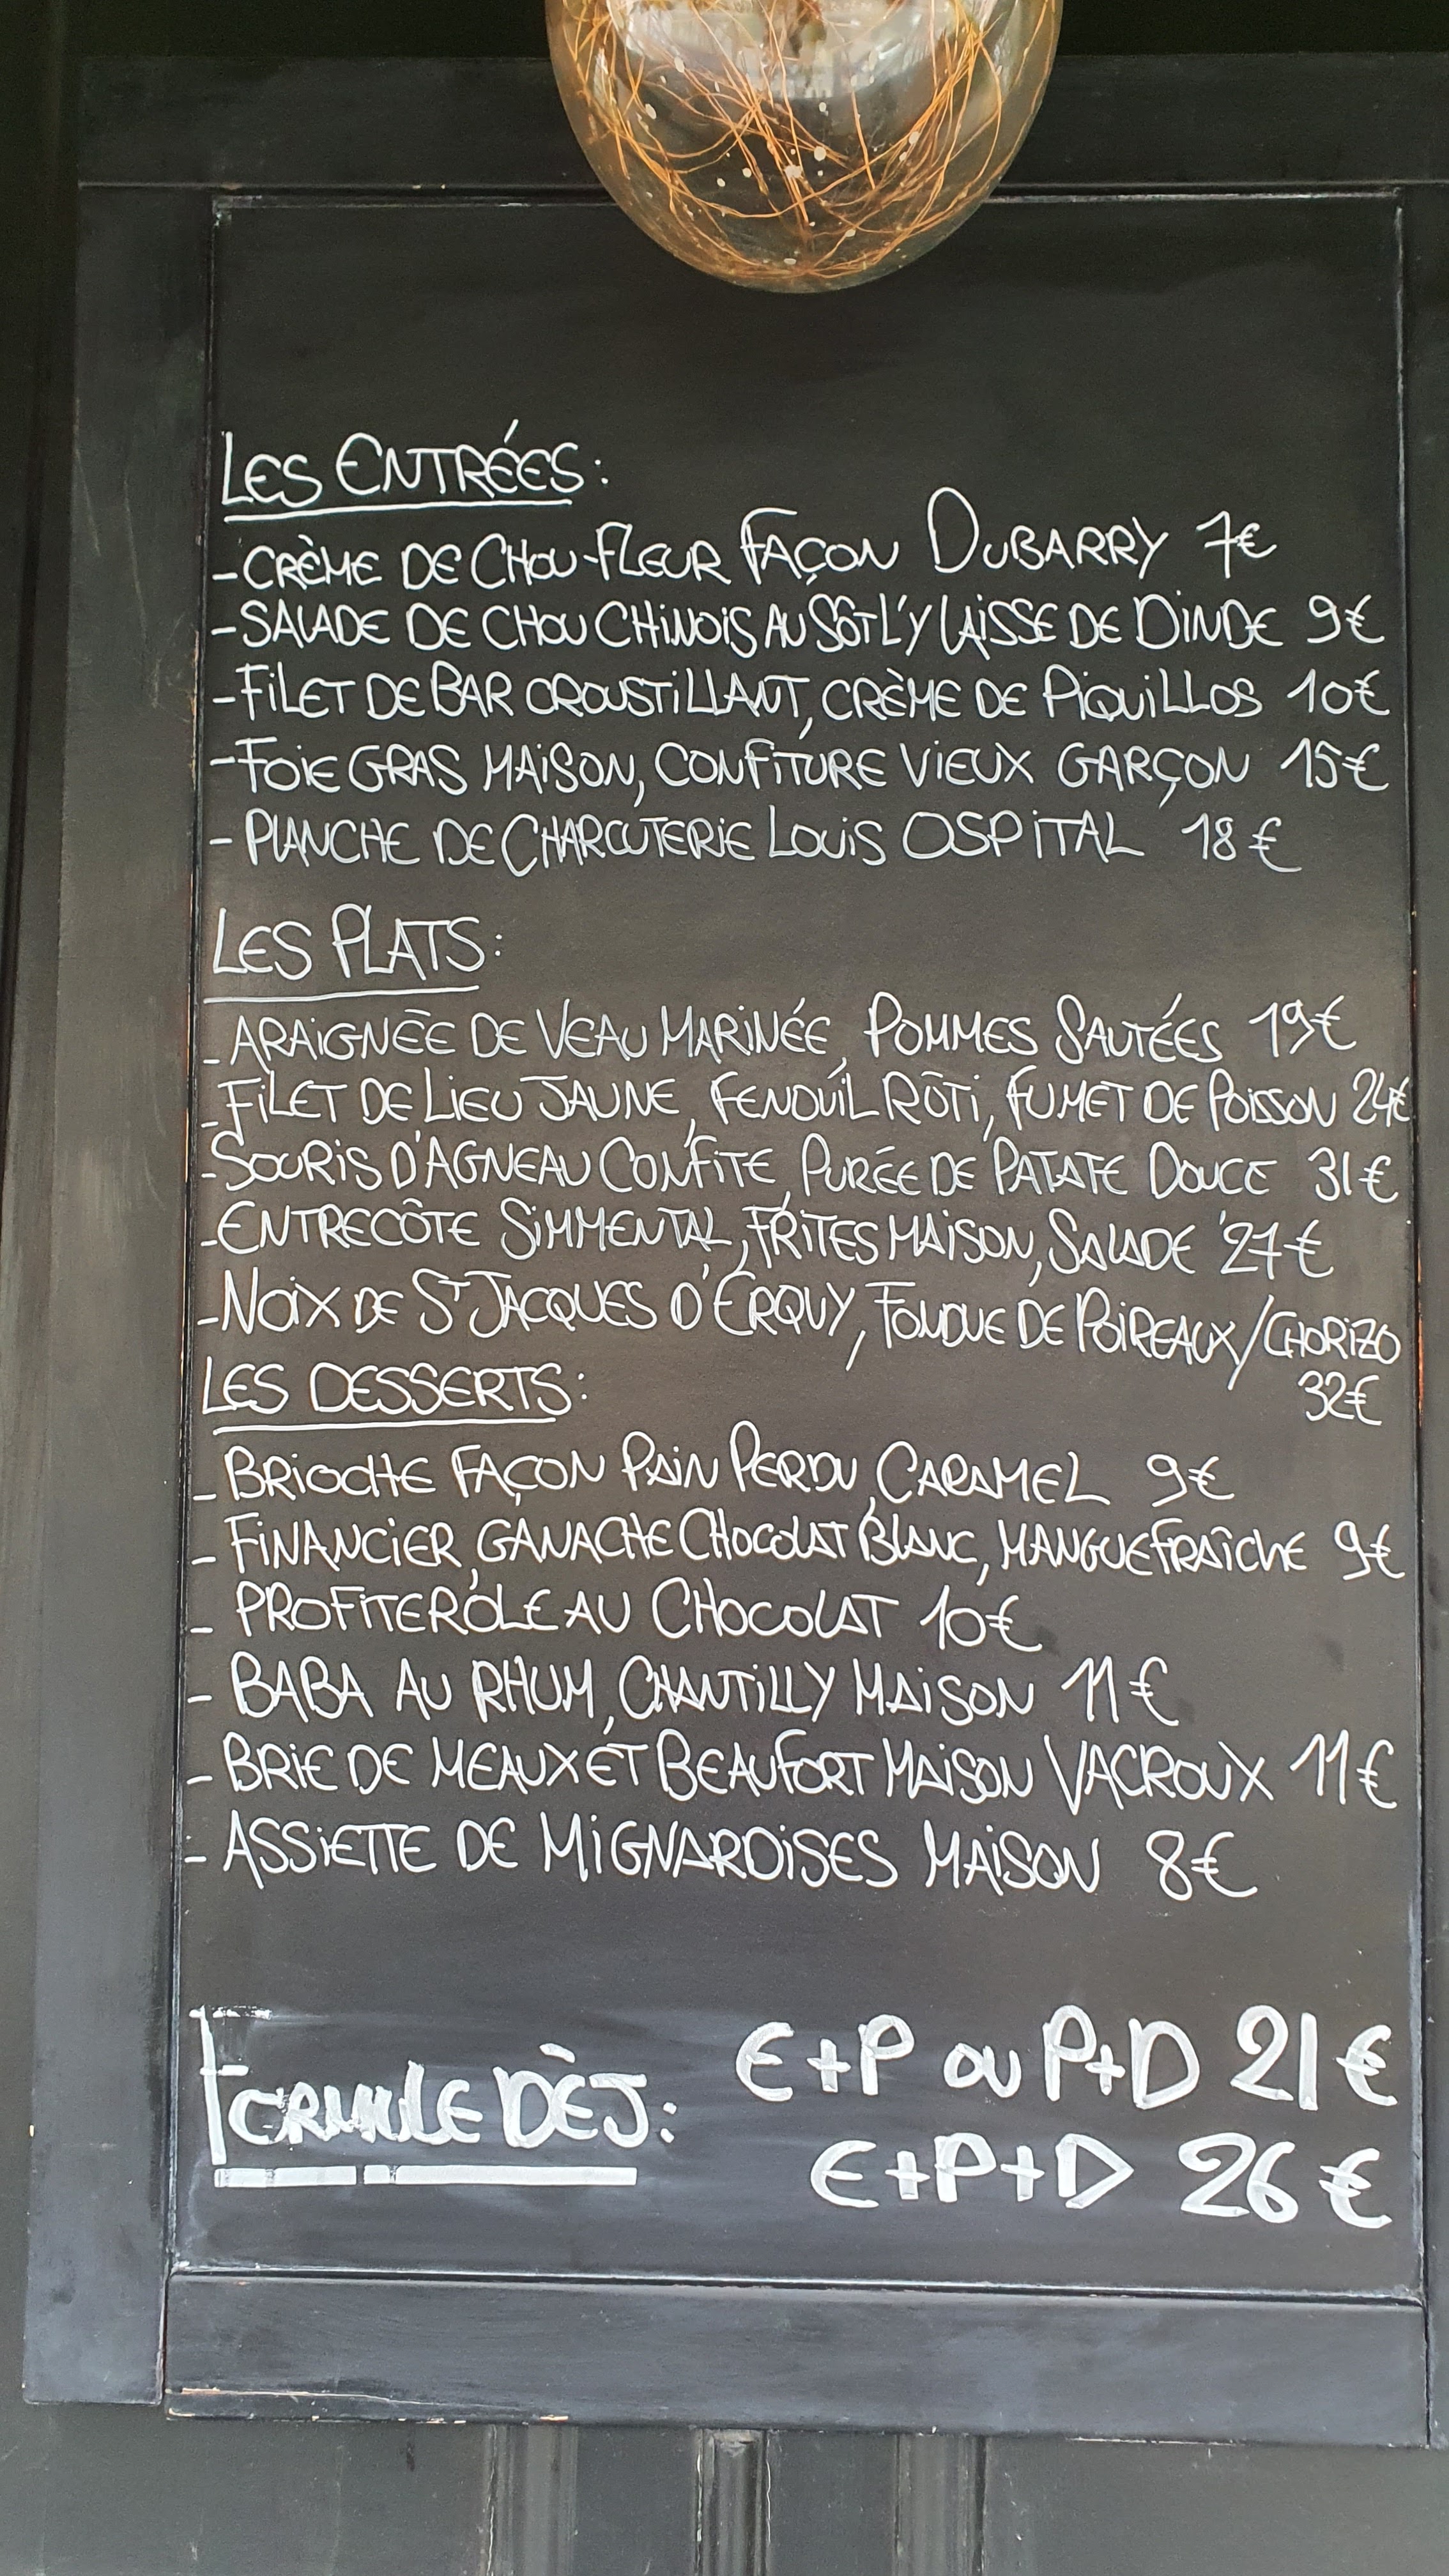 LES ENTRÉES:
-CRÈME DE CHOU-FLEUR FAÇON DUBARRY 7€
-SALADE DE CHOU CHINOIS AU SÔT L'Y LAISSE DE DINDE 9€
-FILET DE BAR CROUSTILLANT, CRÈME DE PIQUILLOS 10€
-FOIE GRAS MAISON, CONFITURE VIEUX GARÇON 15€
- PLANCHE DE CHARCUTERIE LOUIS OSPITAL 18€
LES PLATS:
-ARAIGNÉE DE VEAU MARINÉE, POMMES SAUTÉES 19€
-FILET DE LIEU JAUNE, FENOUIL RÔTI, FUMET DE POISSON 24€
-SOURIS D'AGNEAU CONFITE, PURÉE DE PATATE DOUCE 31€
-ENTRECÔTE SIMMENTAL, FRITES MAISON, SALADE 27€
-NOIX DE ST JACQUES D'ERQUY, FONDUE DE POIREAUX/CHORIZO
32€
LES DESSERTS:
- BRIOCHE FAÇON PAIN PERDU, CARAMEL 9€
- FINANCIER, GANACHE CHOCOLAT BLANC, MANGUE FRAÎCHE 9€
- PROFITERÔLE AU CHOCOLAT 10€
- BABA AU RHUM, CHANTILLY MAISON 11€
- BRIE DE MEAUX ET BEAUFORT MAISON VACROUX 11€
- ASSIETTE DE MIGNARDISES MAISON 8€
FORMULE DÈJ: E+P OU P+D 21€
E+P+D 26€